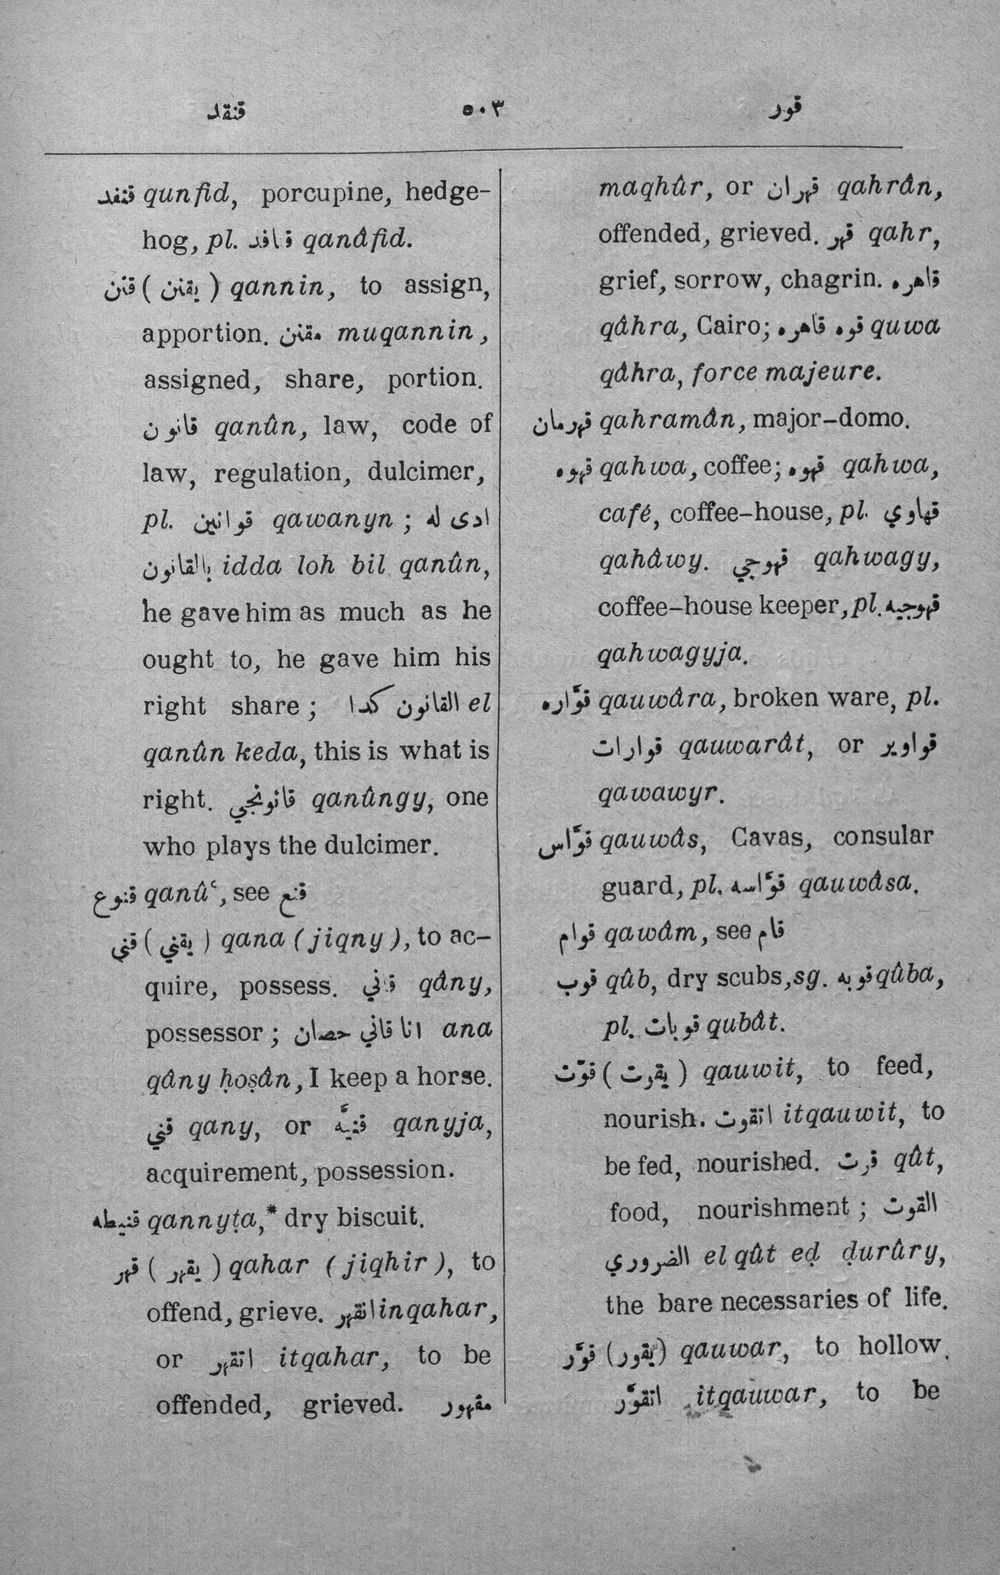 قنقد ٥٠٣ قور
قنفد qunfid, porcupine, hedge-
hog, pl. قنافد qanâfid.
قنن ( يقنن ) qannin, to assign,
apportion. مقنن muqannin,
assigned, share, portion.
قانون qanûn, law, code of
law, regulation, dulcimer,
pl. قوانين qawanyn ; ادى له
بالقانون idda loh bil qanûn,
he gave him as much as he
ought to, he gave him his
right share ; القانون كدا el
qanûn keda, this is what is
right. قانونجي qanûngy, one
who plays the dulcimer.
قنوع qanûʿ, see قنع
قني ( يقني ) qana (jiqny), to ac-
quire, possess. قاني qâny,
possessor ; انا قاني حصان ana
qâny ḥoṣân, I keep a horse.
قني qany, or قنيَّه qanyja,
acquirement, possession.
قنيطه qannyṭa,* dry biscuit.
قهر ( يقهر ) qahar (jiqhir), to
offend, grieve. انقهر inqahar,
or اتقهر itqahar, to be
offended, grieved. مقهور
maqhûr, or قهران qahrân,
offended, grieved. قهر qahr,
grief, sorrow, chagrin. قاهره
qâhra, Cairo; قوه قاهره quwa
qâhra, force majeure.
قهرمان qahramân, major-domo.
قهوه qahwa, coffee; قهوه qahwa,
café, coffee-house, pl. قهاوي
qahâwy. قهوجي qahwagy,
coffee-house keeper, pl. قهوجيه
qahwagyja.
قوَّاره qauwâra, broken ware, pl.
قوارات qauwarât, or قواوير
qawawyr.
قوَّاس qauwâs, Cavas, consular
guard, pl. قوَّاسه qauwâsa.
قوام qawâm, see قام
قوب qûb, dry scubs, sg. قوبه qûba,
pl. قوبات qubât.
قوّت ( يقوت ) qauwit, to feed,
nourish. اتقوت itqauwit, to
be fed, nourished. قوت qût,
food, nourishment ; القوت
الضروري el qût eḍ ḍurûry,
the bare necessaries of life.
قوَّر (يقور) qauwar, to hollow.
اتقوَّر itqauwar, to be